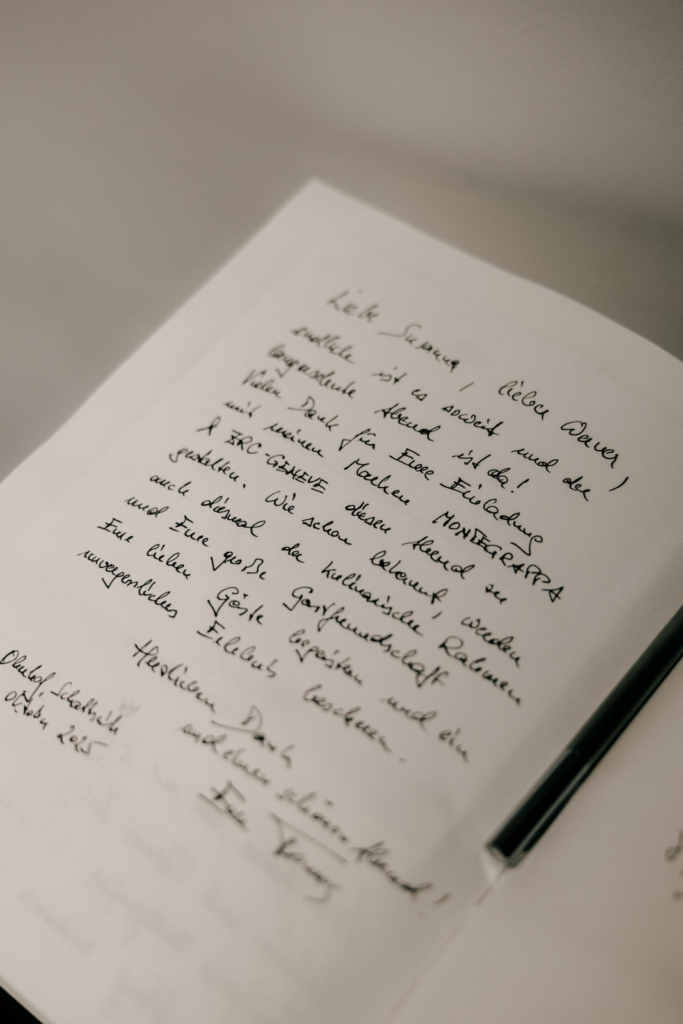 Liebe Susanna, lieber Werner,
endlich ist es soweit und der
langersehnte Abend ist da!
Vielen Dank für Eure Einladung
mit meinen Marken MONTEGRAPPA
& ERC-GENEVE diesen Abend zu
gestalten. Wie schon bekannt, werden
auch diesmal der kulinarische Rahmen
und Eure große Gastfreundschaft
Eure lieben Gäste begeistern und ein
unvergessliches Erlebnis bescheren.
Herzlichen Dank
und einen schönen Abend!
Euer
Oktober 2025